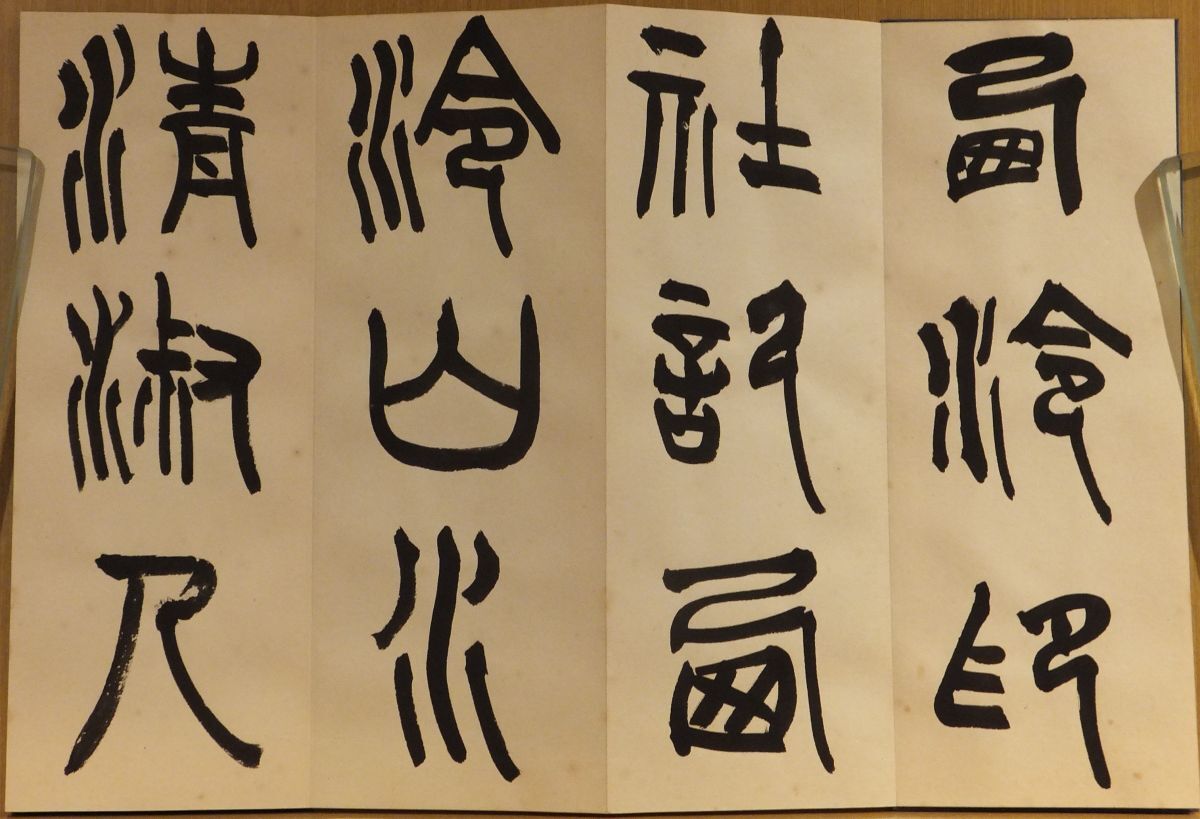 西泠印
社記西
泠山水
清淑人